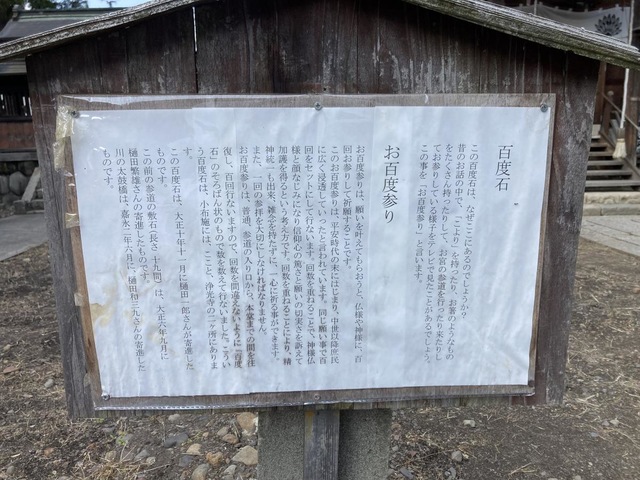 百度石
この百度石は、なぜここにあるのでしょうか？
昔のお話の中で、「こより」を持ったり、お箸のようなもの
をたくさん持ったりして、お宮の参道を行ったり来たりし
てお参りしている様子をテレビで見たことがあるでしょう。
この事を「お百度参り」と言います。
お百度参り
お百度参りは、願いを叶えてもらおうと、仏様や神様に、百
回お参りして祈願することです。
このお百度参りは、平安時代の末にはじまり、中世以降庶民
に広く浸透していったと言われています。同じ願い事で百
回をセットにして行ないます。回数を重ねることで、神様仏
様と顔なじみになり信仰心の篤さと願いの切実さを訴えて
加護を得るという考え方です。回数を重ねることにより、精
神統一も出来、雑念を持たずに、一心に祈る事ができます。
また、一回の参拝を大切にしなければなりません。
お百度参りは、普通、参道の入り口から、本堂までの間を往
復し、百回行ないますので、回数を間違えないように「百度
石」のそろばん状のもので数を数えて行ないました。こうい
う百度石は、小布施には、ここと、浄光寺の二ヶ所にありま
す。
この百度石は、大正十年十一月に樋田一郎さんが寄進した
ものです。
この前の参道の敷石（長さ 十九間）は、大正六年九月に
樋田繁雄さんの寄進したものです。
川の太鼓橋は、嘉永二年六月に、樋田和三九さんの寄進した
ものです。